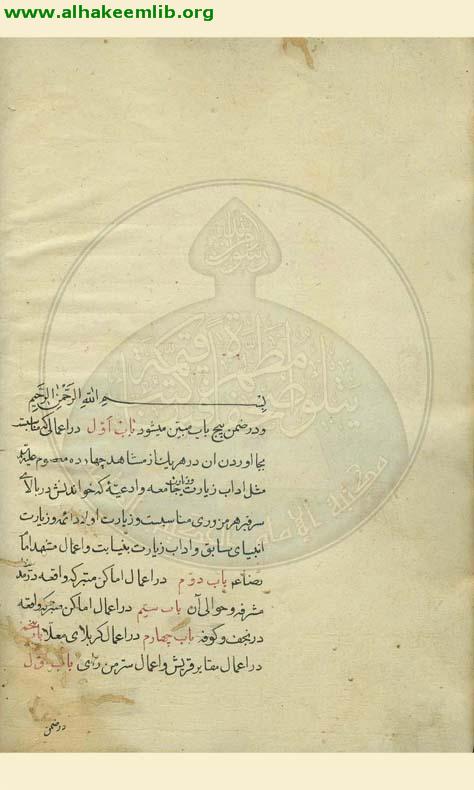 www.alhakeemlib.org
بسم الله الرحمن الرحيم
و در ضمن پنج باب مبین میشود باب اول در اعمالی که مناسبت
بجا اوردن ان در هر یک از مشاهد چهارده معصوم علیه
مثل اداب زیارت و زیارت جامعه و ادعیهٔ که خواندنش در بالای
سر قبر هر مزوری مناسبست و زیارت اولاد ائمه و زیارت
انبیای سابق و اداب زیارت بنیابت و اعمال مشهد اما
رضا عم باب دوم در اعمال اماکن متبرکه واقعه در مدینه
مشرفه و حوالی آن باب سیم در اعمال اماکن متبرکه واقعه
در نجف و کوفه باب چهارم در اعمال کربلای معلا باب پنجم
در اعمال مقابر قریش و اعمال سر من رای باب اول
در ضمن
مكتبة الإمام الحكيم